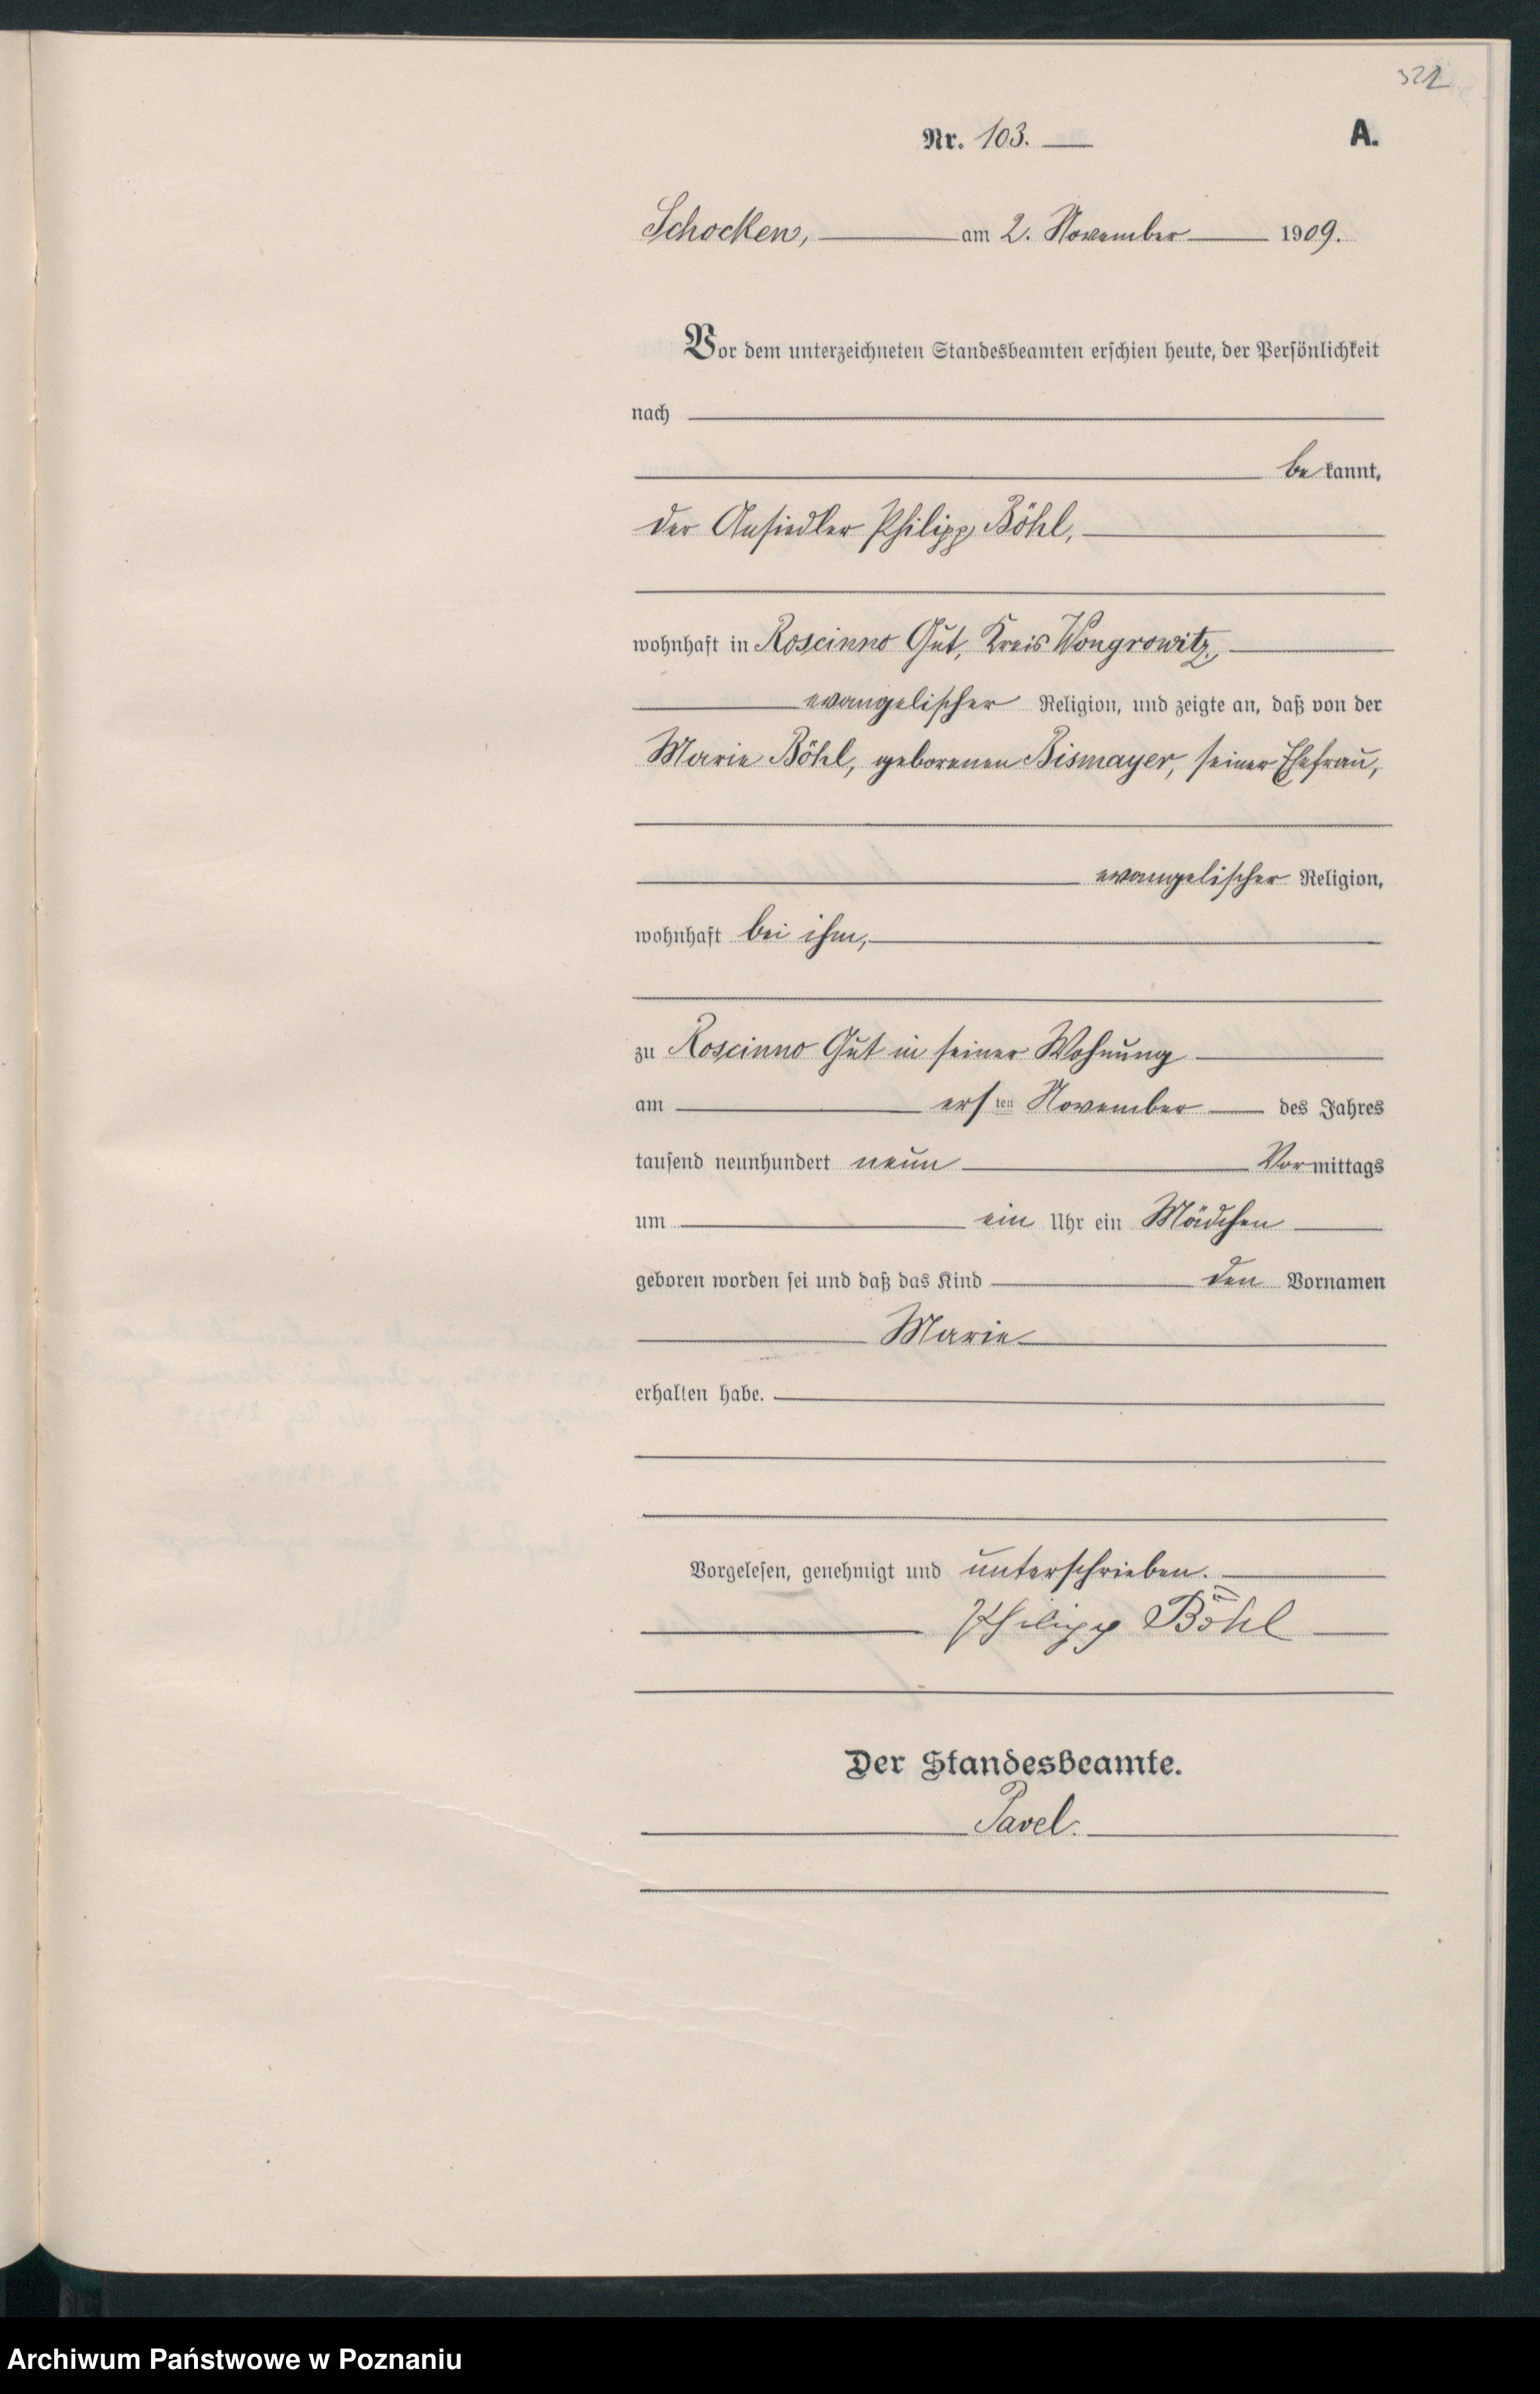 321
Nr. 103.
A.
Schocken, am 2. November 1909.
Vor dem unterzeichneten Standesbeamten erschien heute, der Persönlichkeit
nach
be kannt,
der Ansiedler Philipp Böhl,
wohnhaft in Roscinno Gut, Kreis Wongrowitz,
evangelischer Religion, und zeigte an, daß von der
Marie Böhl, geborenen Bismayer, seiner Ehefrau,
evangelischer Religion,
wohnhaft bei ihm,
zu Roscinno Gut in seiner Wohnung
am ersten November des Jahres
tausend neunhundert neun Vormittags
um ein Uhr ein Mädchen
geboren worden sei und daß das Kind den Vornamen
Marie
erhalten habe.
Vorgelesen, genehmigt und unterschrieben.
Philipp Böhl
Der Standesbeamte.
Pavel.
Archiwum Państwowe w Poznaniu